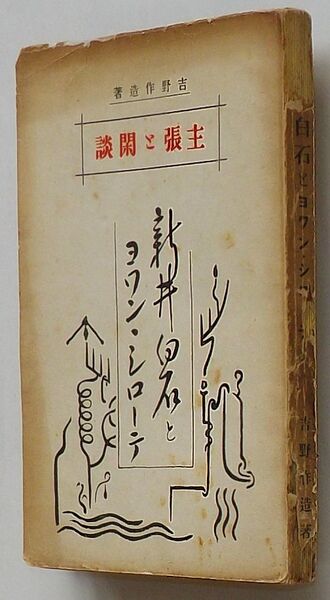 著造作野吉
談閑と張主
新井白石と
ヨワン・シローテ
白石とヨワン・シローテ
吉野作造著